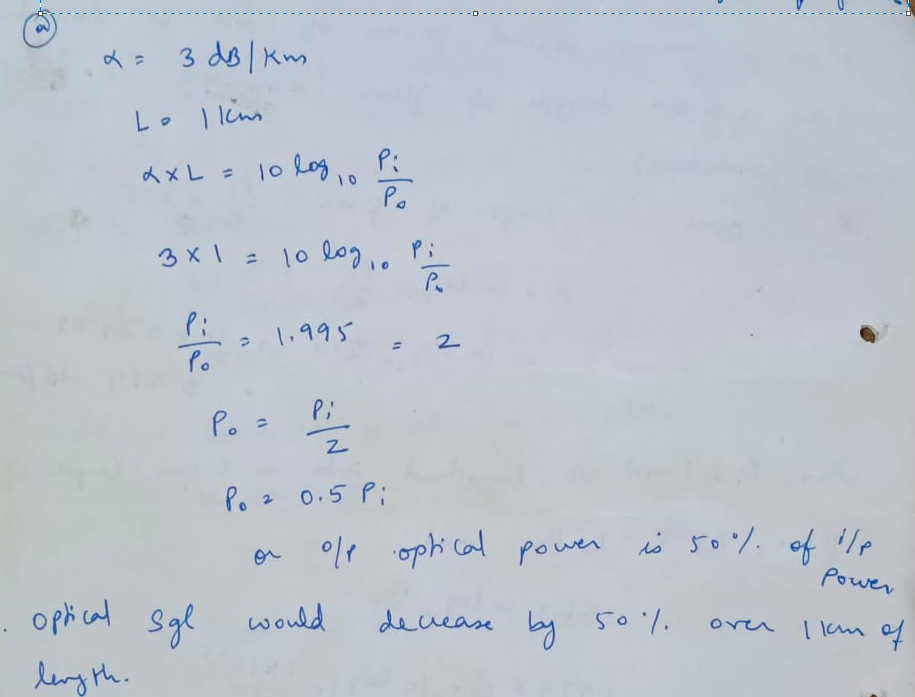 2
α = 3 dB/Km
L = 1 km
α × L = 10 log10 Pi/Po
3 × 1 = 10 log10 Pi/Po
Pi/Po = 1.995 = 2
Po = Pi/2
Po = 0.5 Pi
or o/p optical power is 50 % of i/p
Power
. optical Sgl would decrease by 50 % over 1 km of
length.